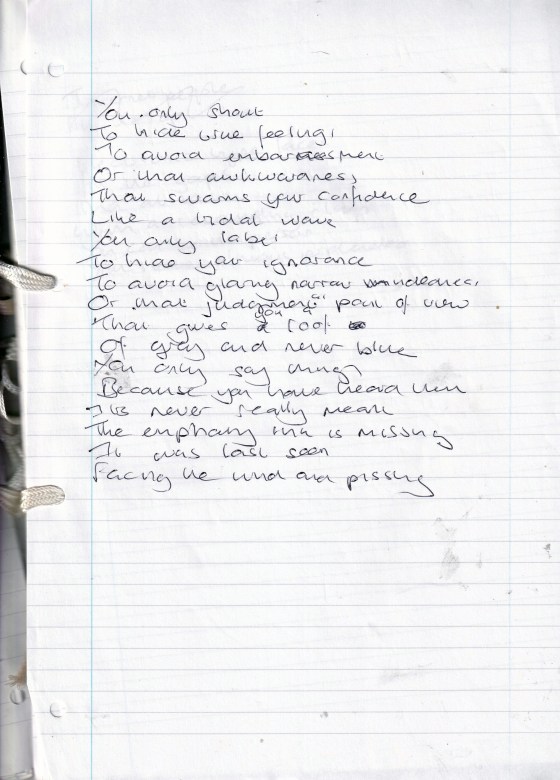 You only shout
To hide true feelings
To avoid embarrassment
Or that awkwardness
That swarms your confidence
Like a tidal wave
You only label
To hide your ignorance
To avoid glaring narrow mindedness
Or that judgmental point of view
That gives you a roof
Of gray and never blue
You only say things
Because you have heard them
Its never really meant
The emphany ink is missing
It was last seen
Facing the wind and pissing